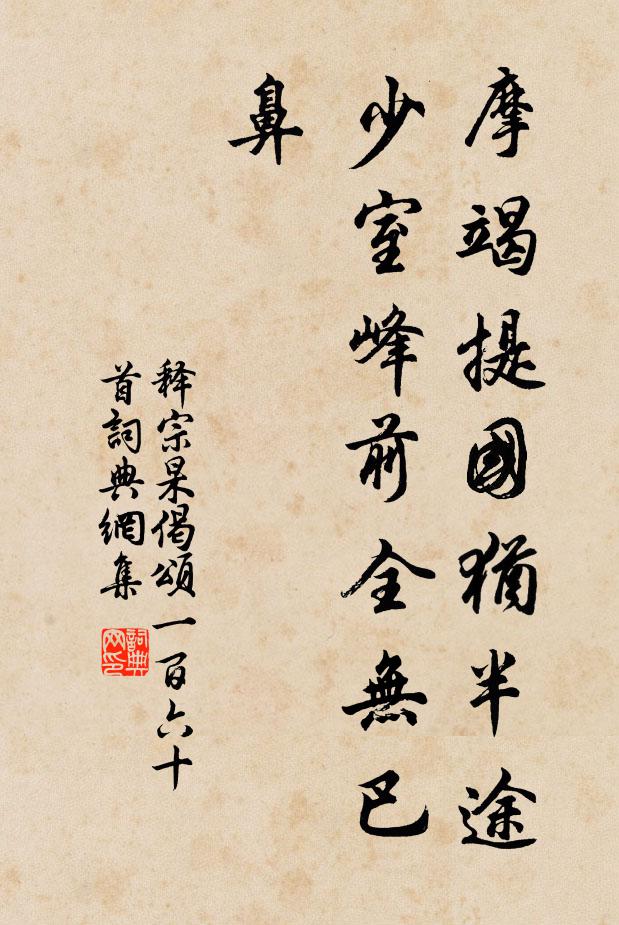 摩竭提國猶半途
少室峰前全無巴
鼻
释宗杲偈頌一百六十
首詞典網集
詞典网印